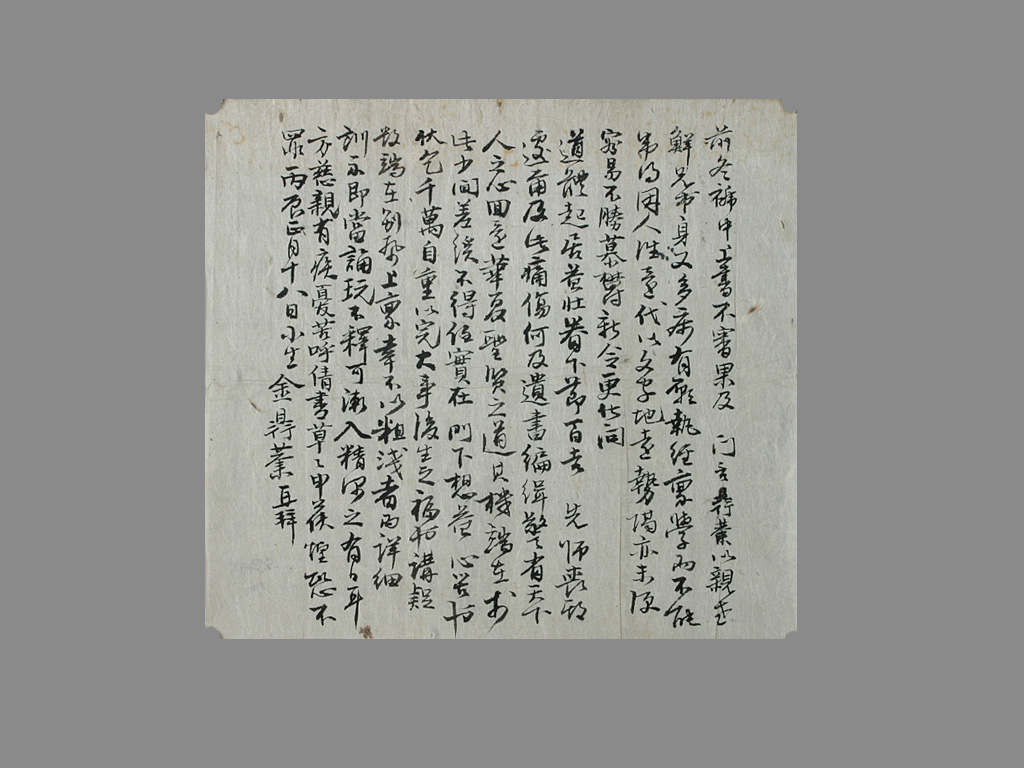 前冬褫中上書不審果及 門否鼎業以親老
鮮兄弟身又多病有難執經稟學而不能
第得因人往還代以文字地遠勢隔亦未復
容易不勝慕鬱新令更化伏問
道體起居益壯眷下節百吉 先師喪期
遽廓及此痛傷何及遺書編緝警有天下
人之心回還華夏聖賢之道其機端在於
此少間差緩不得任實在 門下想益心苦切
伏乞千萬自重以完大事後生之福也講疑
數端在別紙上稟幸不以粗淺者而詳細
訓示即當誦玩不釋可漸入精深之有日耳
方慈親有疾憂苦呼倩書草〻甲蔟惶恐不
罪丙辰正月十八日小生 金鼎業再拜